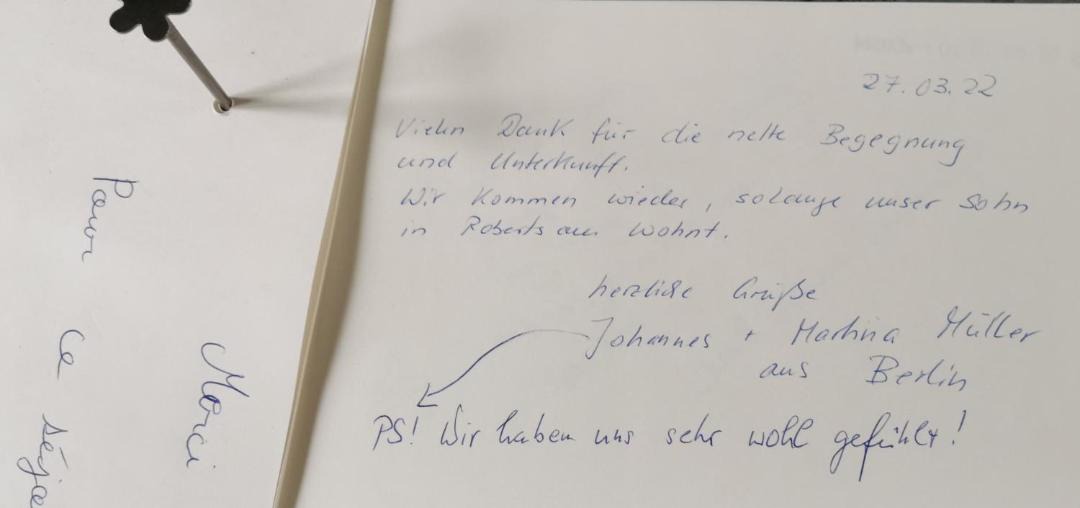 27.03.22
Vielen Dank für die nette Begegnung
und Unterkunft.
Wir kommen wieder, solange unser Sohn
in Robertsau wohnt.
herzliche Grüße
Johannes + Martina Müller
aus Berlin
PS! Wir haben uns sehr wohl gefühlt!
Merci
Pour ce séjo